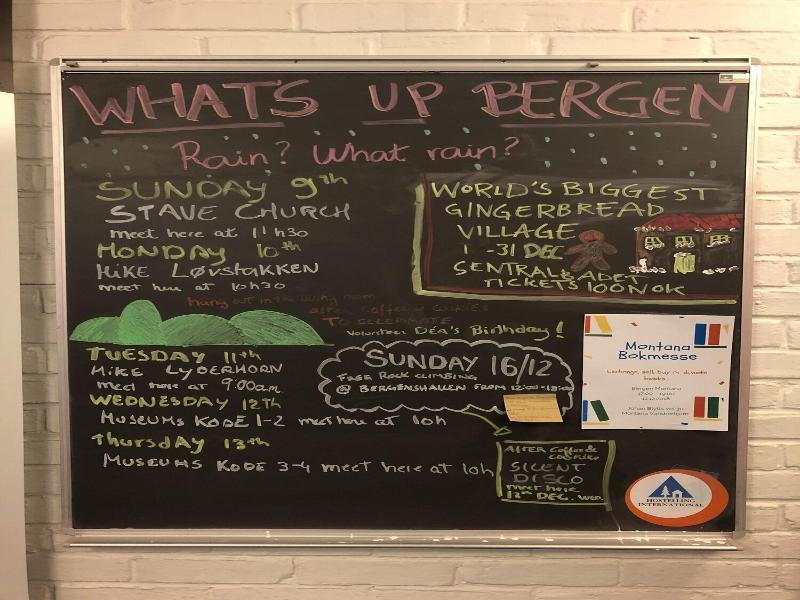 WHAT'S UP BERGEN
Rain? What rain?
SUNDAY 9th
STAVE CHURCH
meet here at 11h30
MONDAY 10th
HIKE LØVSTAKKEN
meet here at 10h30
Hang out in the living room
after coffee & cookies
TO CELEBRATE
volunteer Déa's Birthday!
WORLD'S BIGGEST
GINGERBREAD
VILLAGE
1-31 DEC
SENTRALBADET
TICKETS 100NOK
TUESDAY 11th
HIKE LYDERHORN
meet here at 9:00am
WEDNESDAY 12th
MUSEUMS KODE 1-2 meet here at 10h
THURSDAY 13th
MUSEUMS KODE 3-4 meet here at 10h
SUNDAY 16/12
FREE ROCK CLIMBING
@ BERGENSHALLEN FROM 12:00-18:00
AFTER Coffee &
COOKIES
SILENT
DISCO
meet here
12th DEC. WED
Montana
Bokmesse
Exchange, sell, buy or donate
books
Bergen Montana
HOSTELLING
INTERNATIONAL